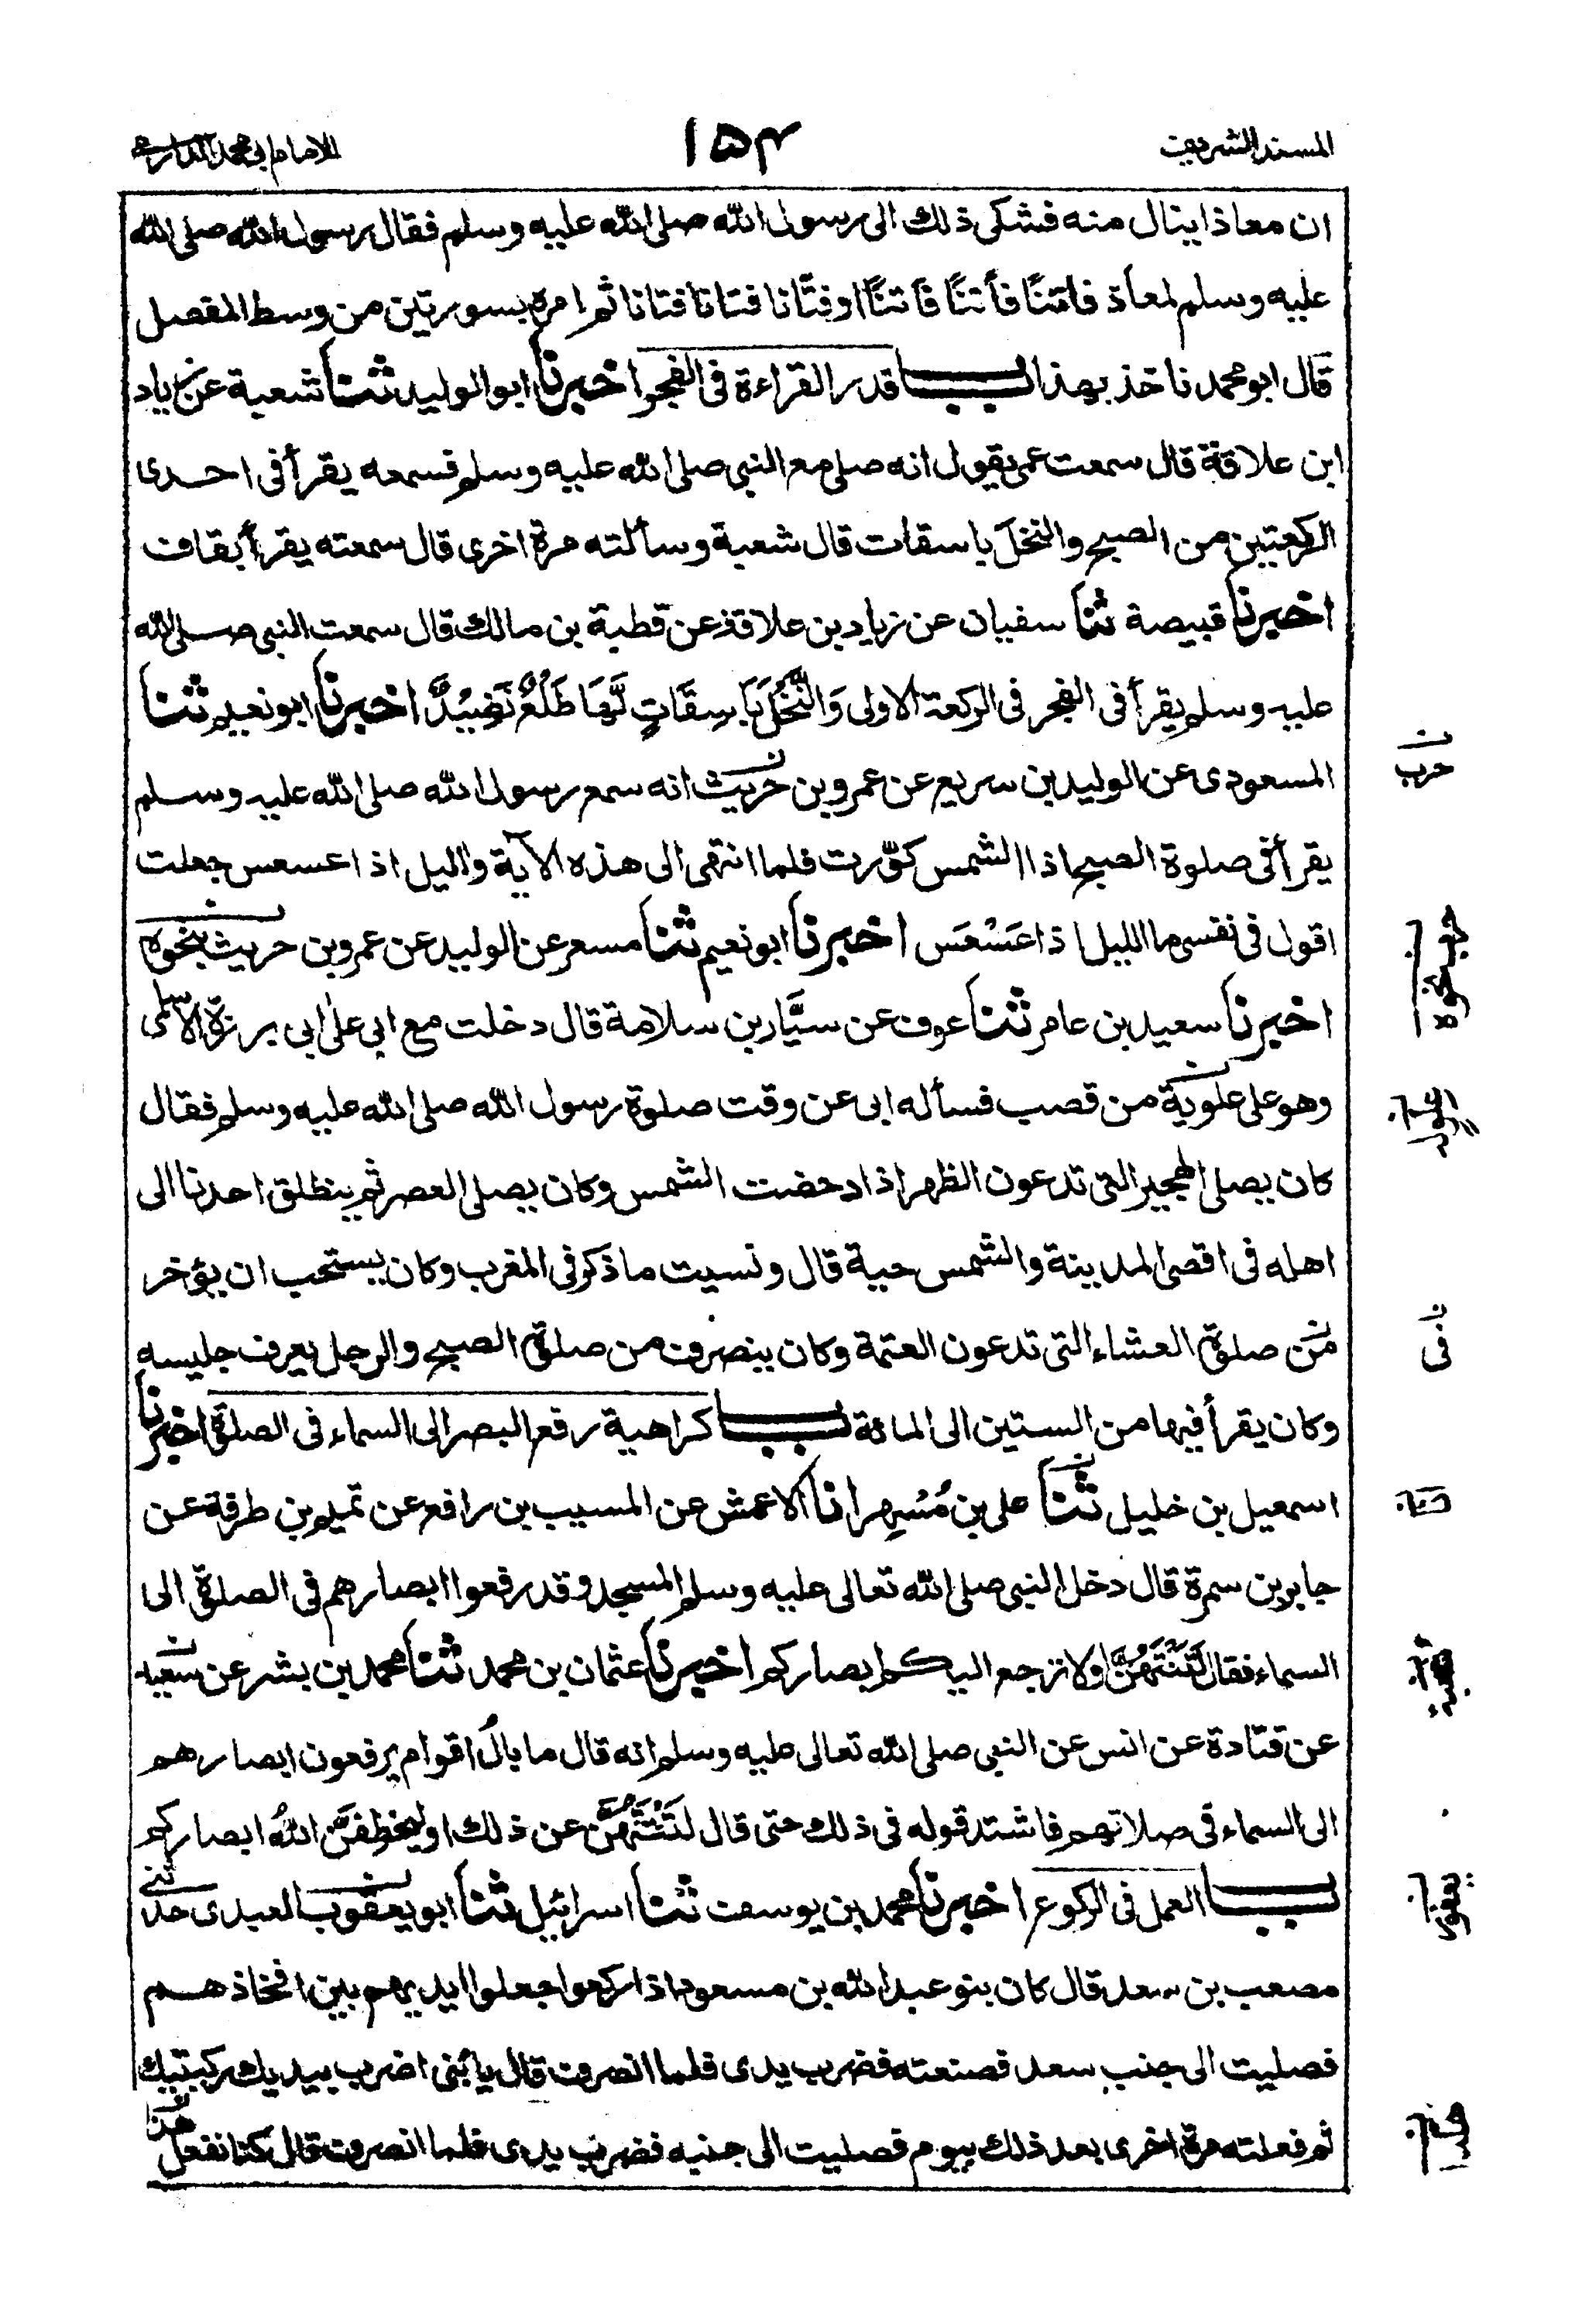 المسند الشريف
١٥٤
للامام ابي محمد الدارمي
ان معاذا ينال منه فشكى ذلك الى رسول الله صلى الله عليه وسلم فقال رسول الله صلى الله
عليه وسلم لمعاذ فاتنًا فأتنًا فَاتنًا اوفتّانا فتانا فتانا ثم امره بسورتين من وسط المفصل
قال ابو محمد ناخذ بهذا باب قدر القراءة فى الفجر اخبرنا ابو الوليد ثنا شعبة عن زياد
ابن علاقة قال سمعت عمى يقول انه صلى مع النبي صلى الله عليه وسلم فسمعه يقرأ فى احدى
الركعتين من الصبح والنخلَ باسقات قال شعبة وسألته مرة اخرى قال سمعته يقرأ بقاف
اخبرنا قبيصة ثنا سفيان عن زياد بن علاقة عن قطبة بن مالك قال سمعت النبي صلى الله
عليه وسلم يقرأ فى الفجر فى الركعة الاولى وَالنَّخْلَ بَاسِقَاتٍ لَّهَا طَلْعٌ نَّضِيْدٌ اخبرنا ابو نعيم ثنا
المسعودى عن الوليد بن سريع عن عمرو بن حريث انه سمع رسول الله صلى الله عليه وسلم
يقرأ فى صلوة الصبح اذا الشمس كوّرت فلما انتهى الى هذه الآية والليل اذا عسعس جعلت
اقول فى نفسى ما الليل اذا عَسْعَس اخبرنا ابو نعيم ثنا مسعر عن الوليد عن عمرو بن حريث بنحوه
اخبرنا سعيد بن عامر ثنا عوف عن سيَّار بن سلامة قال دخلت مع ابى على ابى برزة الاسلمى
وهو على علوية من قصب فسأله ابى عن وقت صلوة رسول الله صلى الله عليه وسلم فقال
كان يصلى الهجير التى تدعون الظهر اذا دحضت الشمس وكان يصلى العصر ثم ينطلق احدنا الى
اهله فى اقصى المدينة والشمس حية قال ونسيت ما ذكر فى المغرب وكان يستحب ان يؤخر
من صلوة العشاء التى تدعون العتمة وكان ينصرف من صلوة الصبح والرجل يعرف جليسه
وكان يقرأ فيها من الستين الى المائة باب كراهية رفع البصر الى السماء فى الصلوة اخبرنا
اسمعيل بن خليل ثنا على بن مُسْهِر انا الاعمش عن المسيب بن رافع عن تميم بن طرفة عن
جابر بن سمرة قال دخل النبي صلى الله تعالى عليه وسلم المسجد وقد رفعوا ابصارهم فى الصلوة الى
السماء فقال لَتَنْتَهُنَّ او لا ترجع اليكم ابصاركم اخبرنا عثمان بن محمد ثنا محمد بن بشر عن سعيد
عن قتادة عن انس عن النبي صلى الله تعالى عليه وسلم انه قال ما بالُ اقوام يرفعون ابصارهم
الى السماء فى صلاتهم فاشتد قوله فى ذلك حتى قال لَتَنْتَهُنَّ عن ذلك او ليخطفنَّ اللهُ ابصاركم
باب العمل فى الركوع اخبرنا محمد بن يوسف ثنا اسرائيل ثنا ابو يعقوب العبدى حدثنى
مصعب بن سعد قال كان بنو عبد الله بن مسعود اذا ركعوا جعلوا ايديهم بين افخاذهم
فصليت الى جنب سعد فصنعته فضرب يدى فلما انصرف قال يا بُنى اضرب بيديك ركبتيك
ثم فعلته مرة اخرى بعد ذلك بيوم فصليت الى جنبه فضرب يدى فلما انصرف قال كنا نفعل هذا
حرب
فى